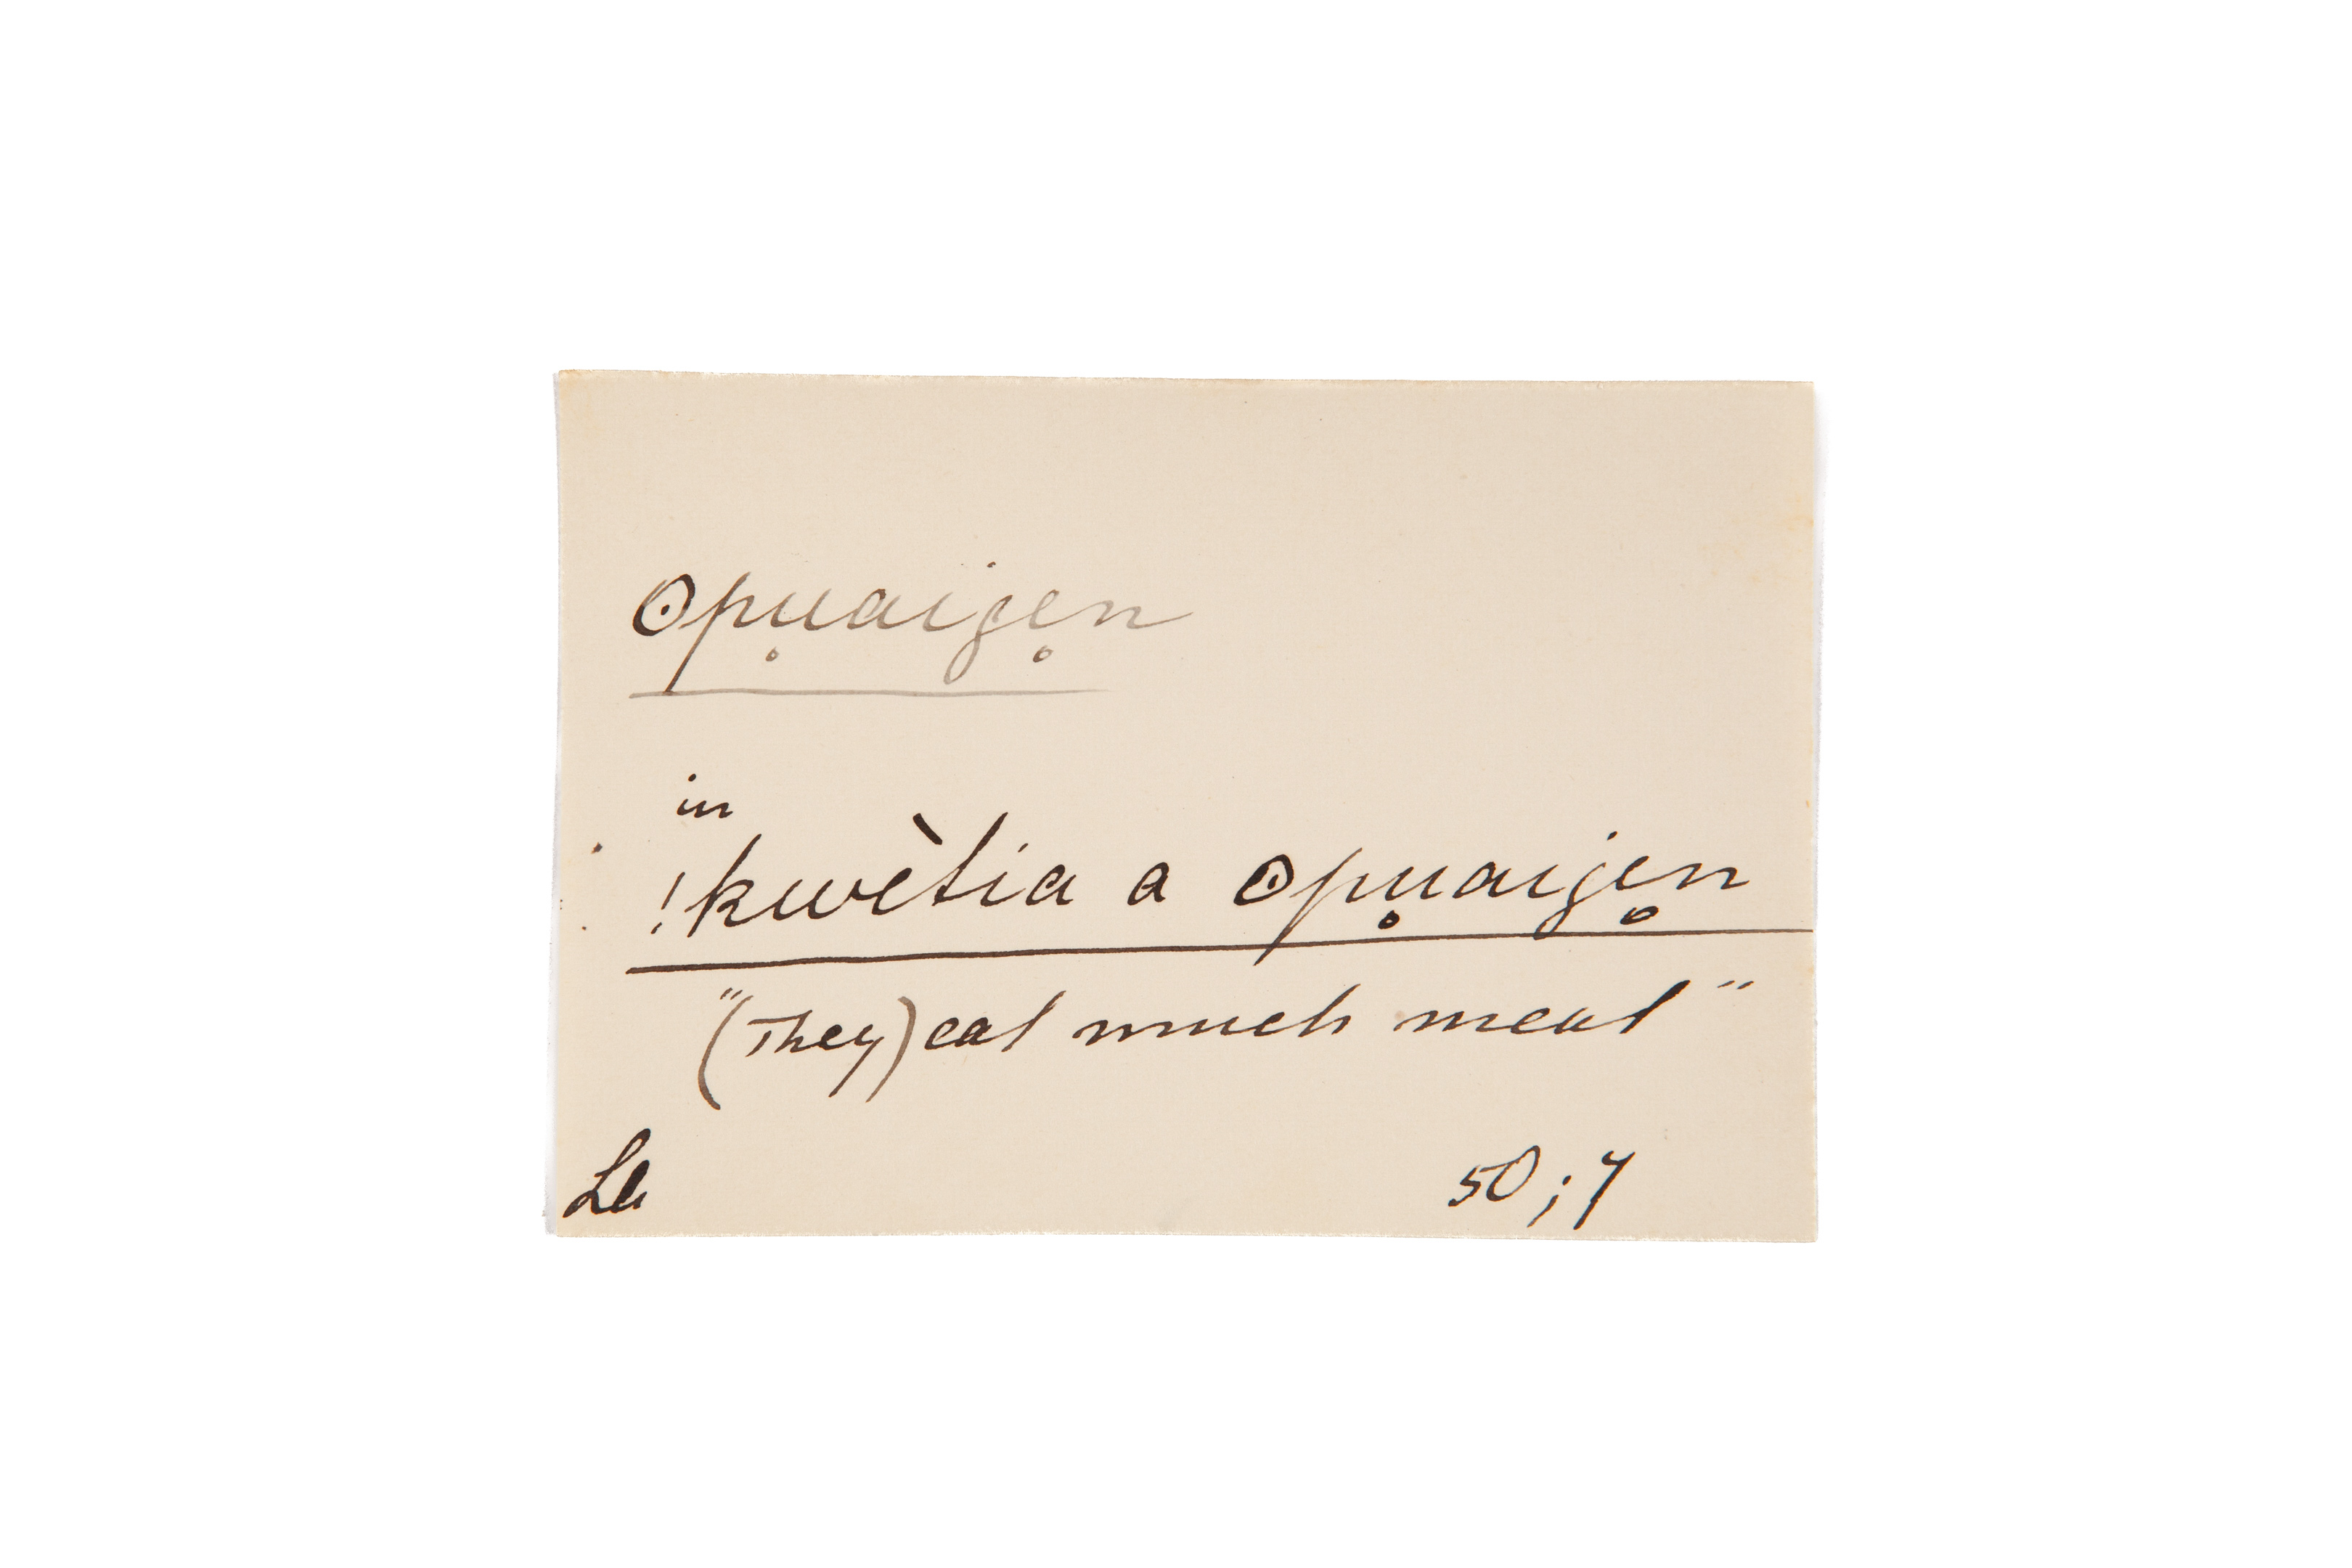 ʘpu̥aige̥n
in
!kwètia a ʘpu̥aige̥n
"(They) eat much meat"
La 50; 7